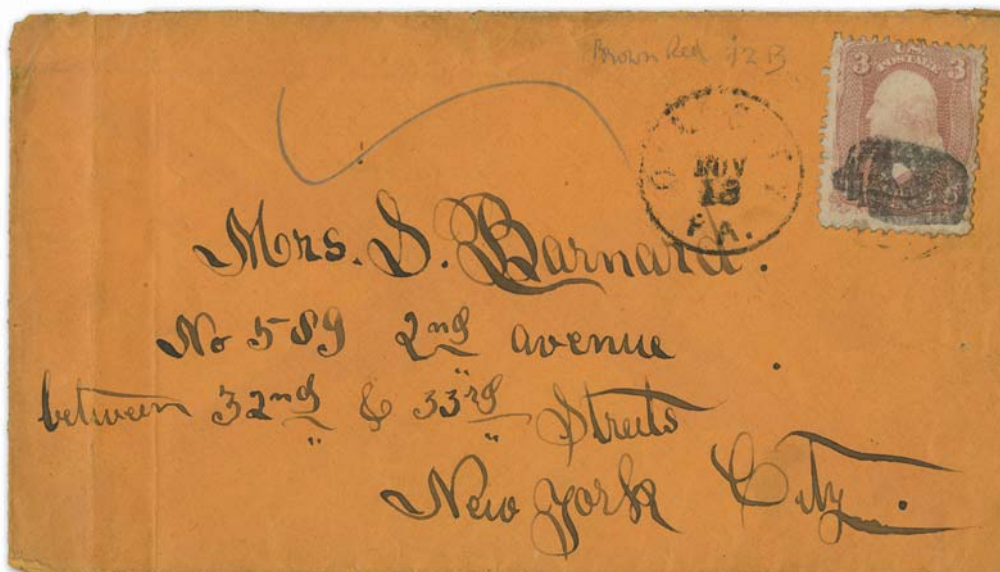 Brown Red
U.S.
3 POSTAGE 3
OIL CITY
NOV
18
PA.
Mrs. S. Barnard.
No 589 2nd avenue
between 32nd & 33rd Streets
New York City.